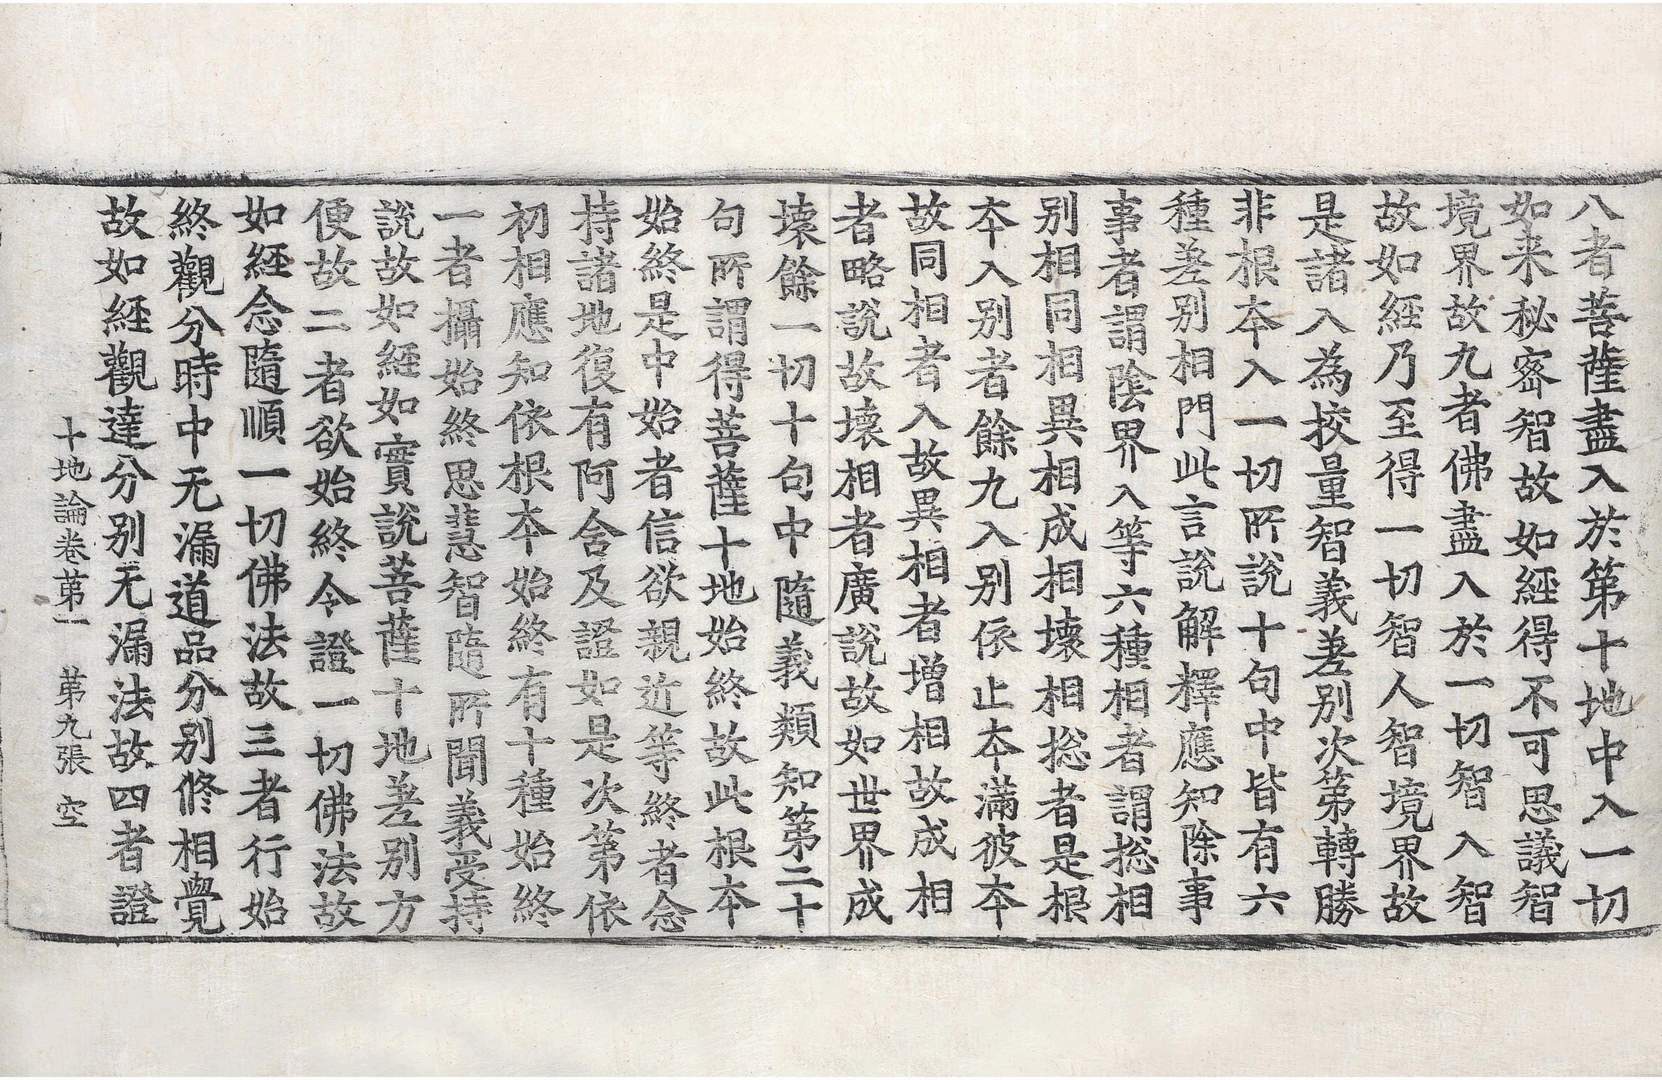 八者菩薩盡入於第十地中入一切
如来秘密智故如經得不可思議智
境界故九者佛盡入於一切智入智
故如經乃至得一切智人智境界故
是諸入為挍量智義差别次第轉勝
非根夲入一切所說十句中皆有六
種差别相門此言說解釋應知除事
事者謂陰界入等六種相者謂捴相
别相同相異相成相壊相捴者是根
夲入别者餘九入别依止夲滿彼夲
故同相者入故異相者增相故成相
者略說故壊相者廣說故如世界成
壊餘一切十句中隨義類知第二十
句所謂得菩薩十地始終故此根夲
始終是中始者信欲親近等終者念
持諸地復有阿含及證如是次第依
初相應知依根夲始終有十種始終
一者攝始終思慧智隨所聞義受持
說故如經如實說菩薩十地差别方
便故二者欲始終令證一切佛法故
如經念隨順一切佛法故三者行始
終觀分時中无漏道品分别修相覺
故如經觀達分别无漏法故四者證
十地論卷第一 第九張 空